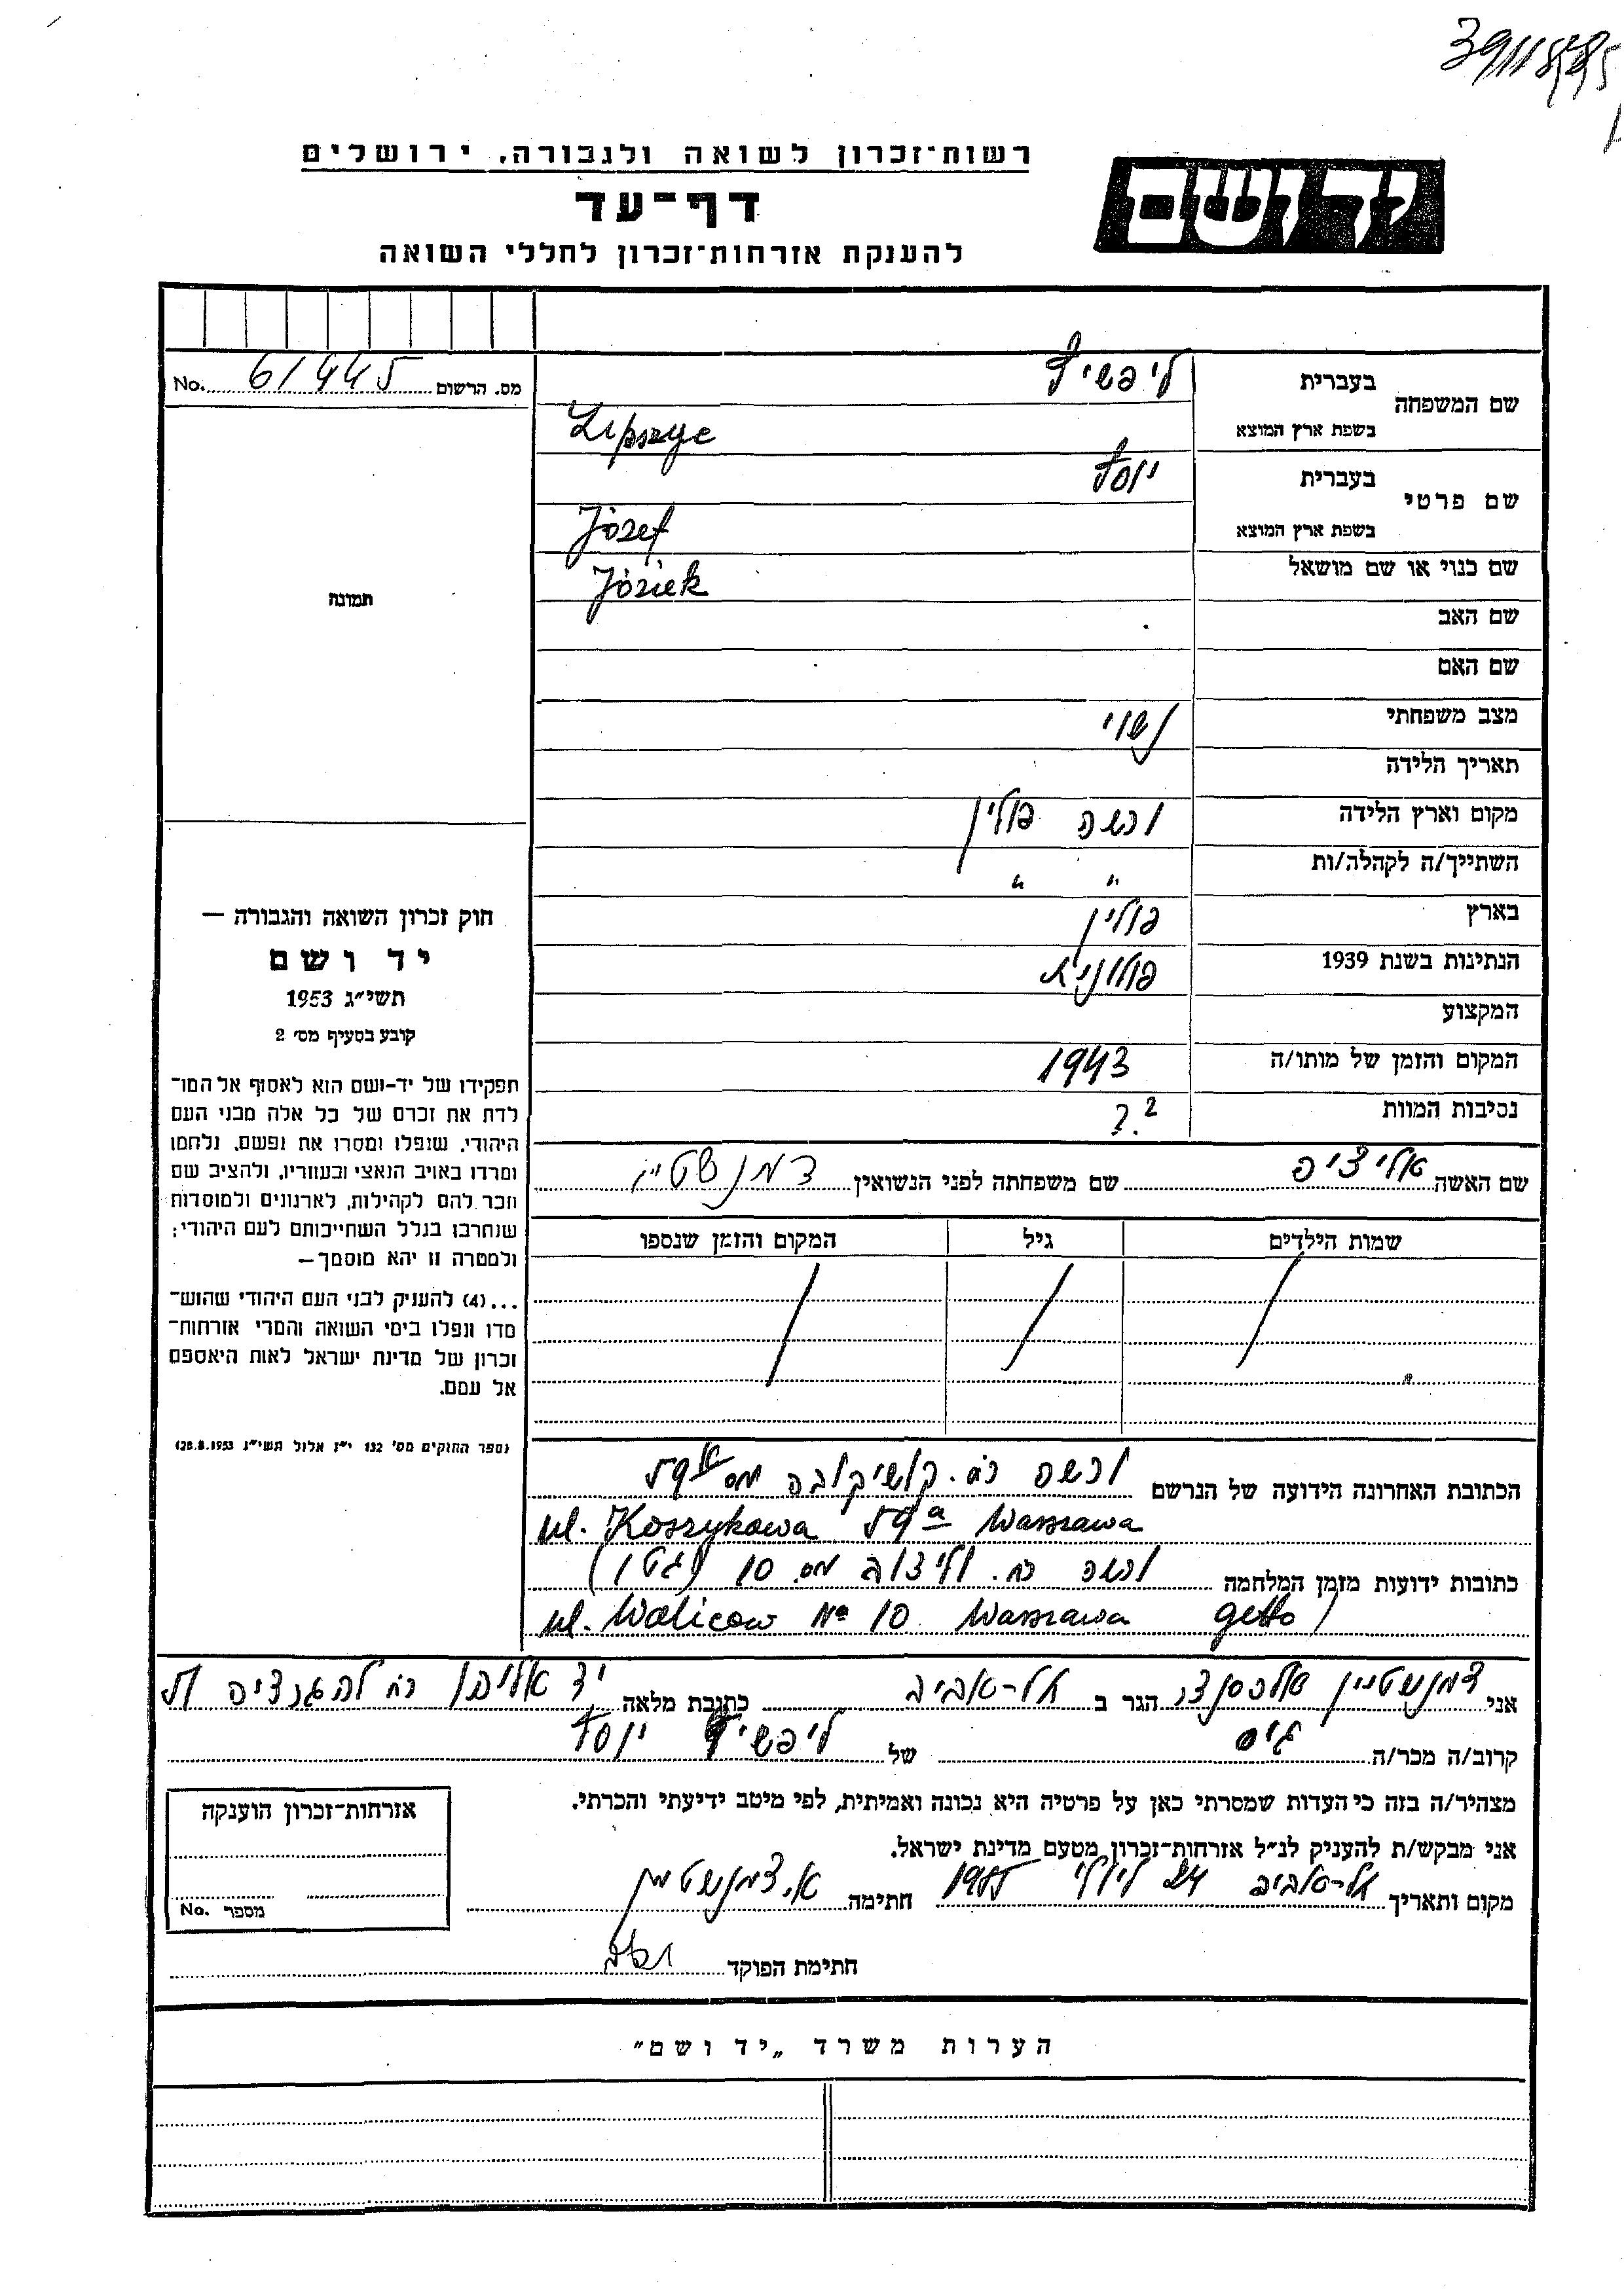 רשות־זכרון לשואה ולגבורה, ירושלים
דף־עד
להענקת אזרחות־זכרון לחללי השואה
יד ושם
No. 61445 מס. הרשום
שם המשפחה
בעברית
בשפת ארץ המוצא Lipszyc
שם פרטי
בעברית יוסף
בשפת ארץ המוצא Józef
שם כנוי או שם מושאל Józiek
שם האב
שם האם
מצב משפחתי נשוי
תאריך הלידה
מקום וארץ הלידה ורשה פולין
השתייך/ה לקהלה/ות " "
בארץ פולין
הנתינות בשנת 1939 פולונית
המקצוע
המקום והזמן של מותו/ה 1943
נסיבות המוות ?
תמונה
חוק זכרון השואה והגבורה —
יד ושם
תשי״ג 1953
קובע בסעיף מס׳ 2
תפקידו של יד־ושם הוא לאסוף אל המו־
לדת את זכרם של כל אלה מבני העם
היהודי, שנפלו ומסרו את נפשם, נלחמו
ומרדו באויב הנאצי ובעוזריו, ולהציב שם
וזכר להם לקהילות, לארגונים ולמוסדות
שנחרבו בגלל השתייכותם לעם היהודי;
ולמטרה זו יהא מוסמך—
...(4) להעניק לבני העם היהודי שהוש־
מדו ונפלו בימי השואה והמרי אזרחות־
זכרון של מדינת ישראל לאות היאספם
אל עמם.
(ספר החוקים מס׳ 132 י״ז אלול תשי״ג 28.8.1953)
שם האשה אליציה שם משפחתה לפני הנשואין
שמות הילדים גיל המקום והזמן שנספו
הכתובת האחרונה הידועה של הנרשם ורשה רח. קושיקובה מס 59א
ul. Koszykowa 59a Warszawa
כתובות ידועות מזמן המלחמה ורשה רח. וליצוב מס. 10 (גטו)
ul. Walicow No 10 Warszawa getto
אני אלכסנדר הגר ב תל-אביב כתובת מלאה יד אליהו רח
קרוב/ה מכר/ה גיס של ליפשיץ יוסף
מצהיר/ה בזה כי העדות שמסרתי כאן על פרטיה היא נכונה ואמיתית, לפי מיטב ידיעתי והכרתי.
אני מבקש/ת להעניק לנ״ל אזרחות־זכרון מטעם מדינת ישראל.
מקום ותאריך תל-אביב יולי חתימה
חתימת הפוקד
אזרחות־זכרון הוענקה
No. מספר
הערות משרד „יד ושם״